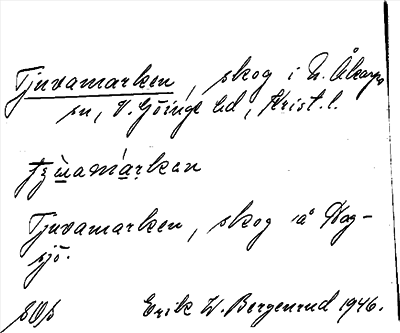 Tjuvamarken, skog i N. Åkarps
sn, V. Göinge hd, Krist. l.
Tjuvamarken, skog å Hag-
sjö.
Erik W. Bergenrud 1946.